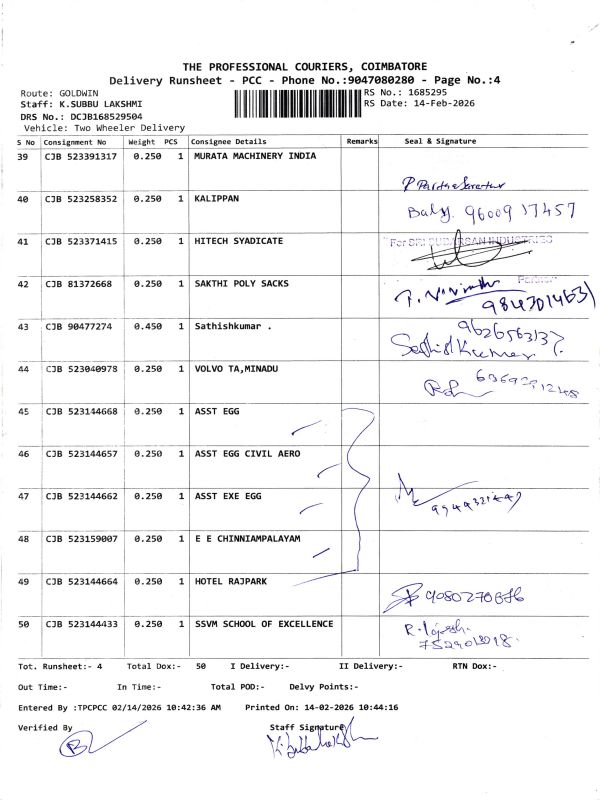 THE PROFESSIONAL COURIERS, COIMBATORE
Delivery Runsheet - PCC - Phone No.:9047080280 - Page No.:4
Route: GOLDWIN
RS No.: 1685295
Staff: K.SUBBU LAKSHMI
RS Date: 14-Feb-2026
DRS No.: DCJB168529504
Vehicle: Two Wheeler Delivery
S No Consignment No Weight PCS Consignee Details Remarks Seal & Signature
39 CJB 523391317 0.250 1 MURATA MACHINERY INDIA
40 CJB 523258352 0.250 1 KALIPPAN
Balu. 9600917457
41 CJB 523371415 0.250 1 HITECH SYADICATE
For SRI SUDARSAN INDUSTRIES
Partner
42 CJB 81372668 0.250 1 SAKTHI POLY SACKS
9847014631
43 CJB 90477274 0.450 1 Sathishkumar .
9626563137
Sathish Kumar
44 CJB 523040978 0.250 1 VOLVO TA,MINADU
45 CJB 523144668 0.250 1 ASST EGG
46 CJB 523144657 0.250 1 ASST EGG CIVIL AERO
47 CJB 523144662 0.250 1 ASST EXE EGG
48 CJB 523159007 0.250 1 E E CHINNIAMPALAYAM
49 CJB 523144664 0.250 1 HOTEL RAJPARK
50 CJB 523144433 0.250 1 SSVM SCHOOL OF EXCELLENCE
Tot. Runsheet:- 4 Total Dox:- 50 I Delivery:- II Delivery:- RTN Dox:-
Out Time:- In Time:- Total POD:- Delvy Points:-
Entered By :TPCPCC 02/14/2026 10:42:36 AM Printed On: 14-02-2026 10:44:16
Verified By Staff Signature